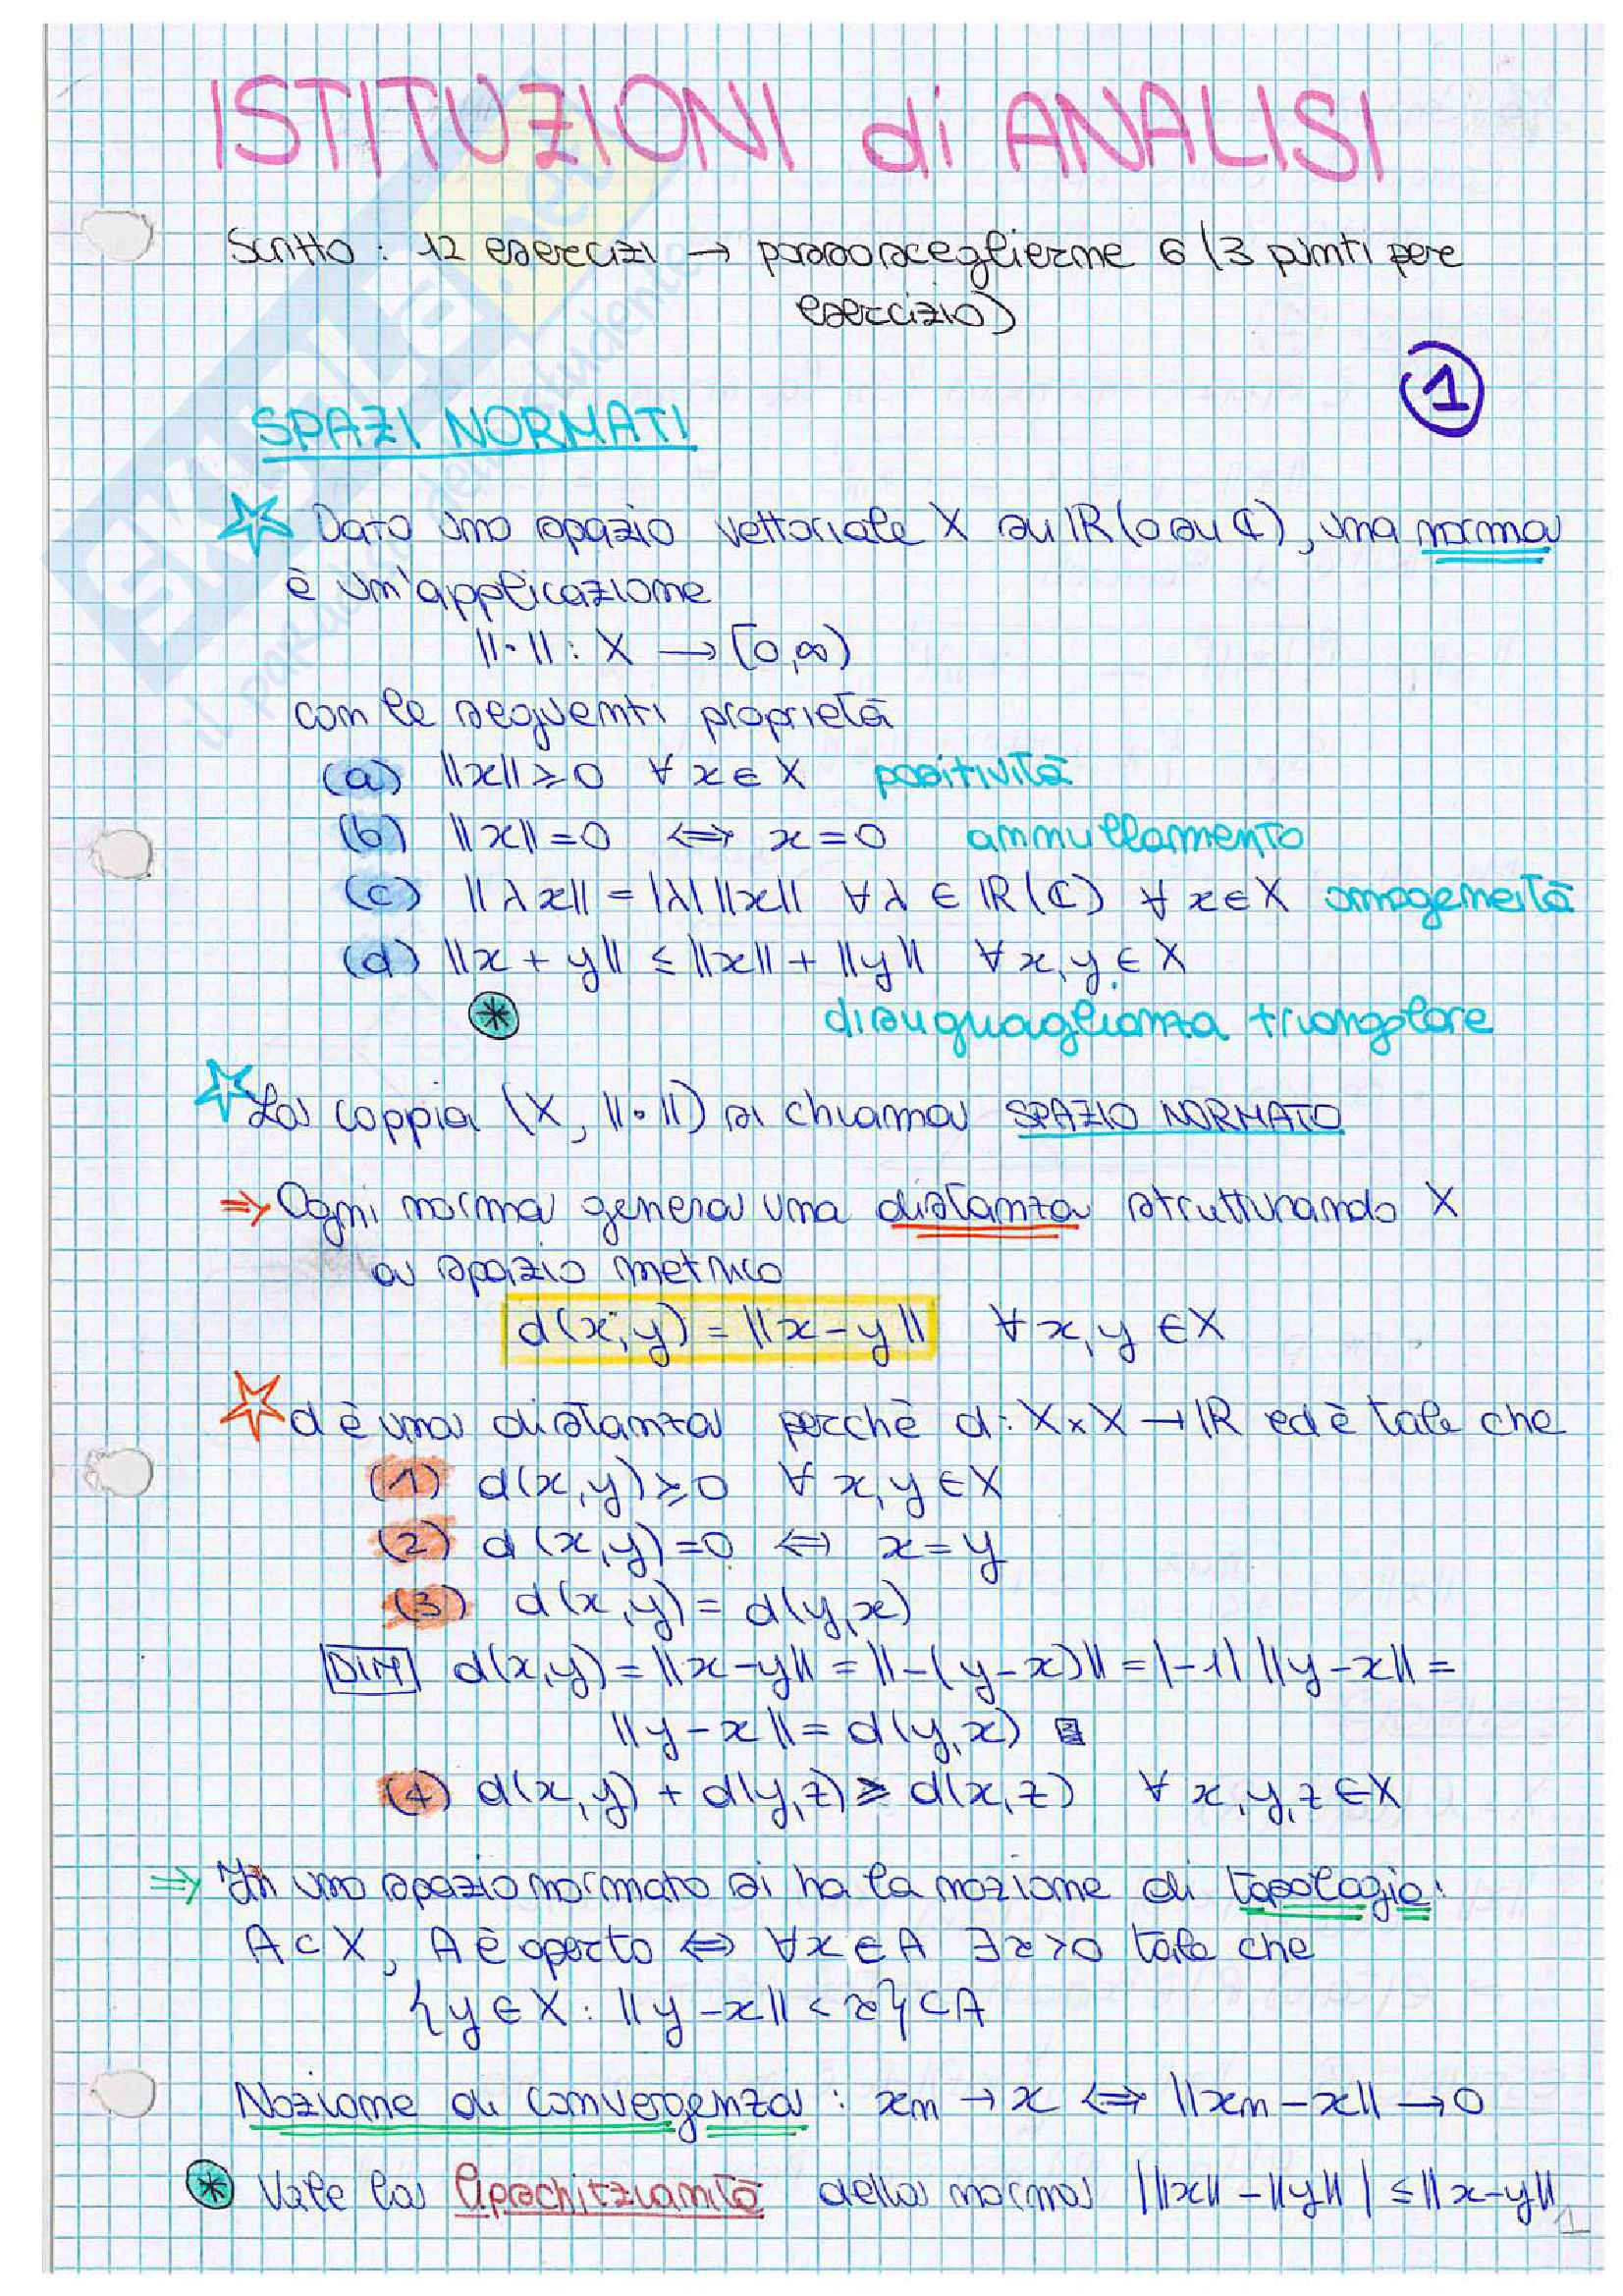 ISTITUZIONI di ANALISI
Scritto: 12 esercizi → posso sceglierne 6 (3 punti per
esercizio)
1
SPAZI NORMATI
Dato uno spazio vettoriale X su ℝ (o su ℂ), una norma
è un'applicazione
||·|| : X → [0,∞)
con le seguenti proprietà
(a) ||x|| ≥ 0 ∀ x ∈ X positività
(b) ||x|| = 0 ⟺ x = 0 annullamento
(c) ||λx|| = |λ| ||x|| ∀ λ ∈ ℝ (ℂ) ∀ x ∈ X omogeneità
(d) ||x + y|| ≤ ||x|| + ||y|| ∀ x, y ∈ X
* disuguaglianza triangolare
La coppia (X, ||·||) si chiama SPAZIO NORMATO
⇒ Ogni norma genera una distanza strutturando X
a spazio metrico
d(x,y) = ||x - y|| ∀ x, y ∈ X
d è una distanza perchè d: X×X → ℝ ed è tale che
(1) d(x,y) ≥ 0 ∀ x, y ∈ X
(2) d(x,y) = 0 ⟺ x = y
(3) d(x,y) = d(y,x)
DIM d(x,y) = ||x-y|| = ||-(y-x)|| = |-1| ||y-x|| =
||y-x|| = d(y,x)
(4) d(x,y) + d(y,z) ≥ d(x,z) ∀ x, y, z ∈ X
⇒ In uno spazio normato si ha la nozione di topologia:
A ⊂ X, A è aperto ⟺ ∀x ∈ A ∃ r > 0 tale che
{y ∈ X : ||y-x|| < r} ⊂ A
Nozione di convergenza : xn → x ⟺ ||xn - x|| → 0
* Vale la lipschitzianità della norma | ||x|| - ||y|| | ≤ ||x-y||
1
SKUOLA.net
il paradiso dello studente